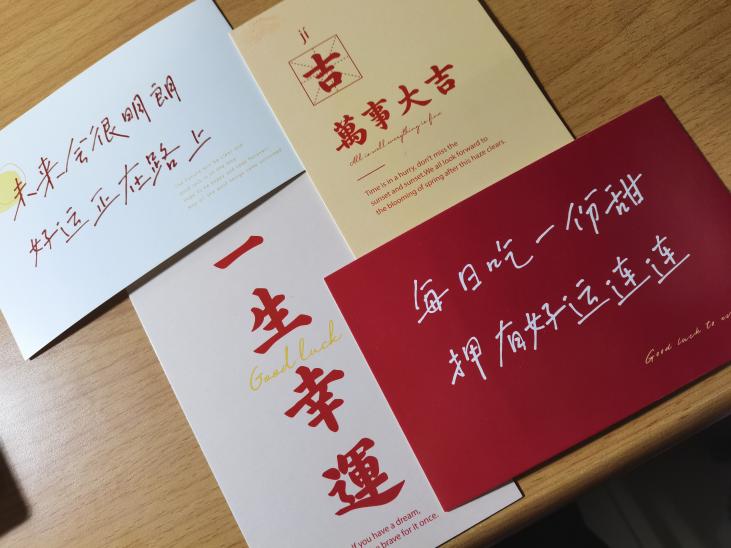 未来会很明朗
好运正在路上
jí
吉
萬事大吉
All is well everything is fine
Time is in a hurry, don't miss the
sunset and sunset.We all look forward to
the blooming of spring after this haze clears.
一生幸運
Good luck
If you have a dream,
brave for it once.
每日吃一份甜
押有好运连连
Good luck to